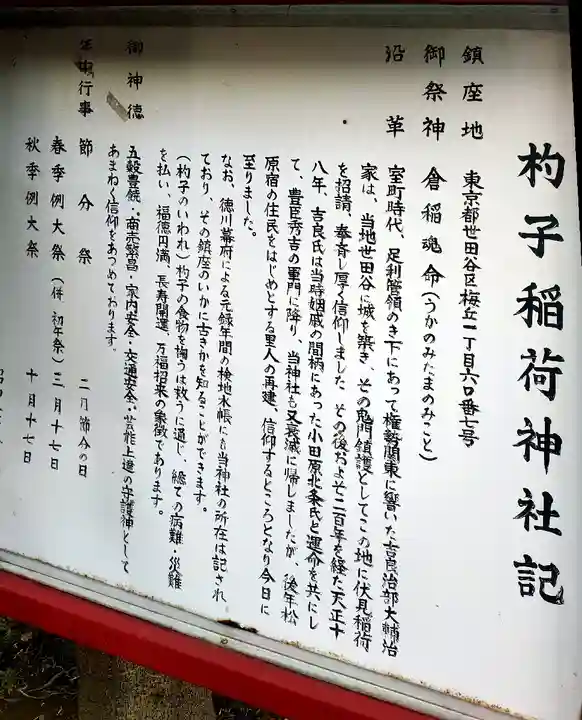 杓子稲荷神社記
鎮座地 東京都世田谷区梅丘一丁目六〇番七号
御祭神 倉稲魂命(うかのみたまのみこと)
沿革 室町時代、足利管領のき下にあって権勢関東に響いた吉良治部大輔治
家は、当地世田谷に城を築き、その鬼門鎮護としてこの地に伏見稲荷
を招請、奉斉し厚く信仰しました。その後およそ二百年を経た天正十
八年、吉良氏は当時姻戚の間柄にあった小田原北条氏と運命を共にし
て、豊臣秀吉の軍門に降り、当神社も又衰滅に帰しましたが、後年松
原宿の住民をはじめとする里人の再建、信仰するところとなり今日に
至りました。
なお、徳川幕府による元禄年間の検地水帳にも当神社の所在は記され
ており、その鎮座のいかに古きかを知ることができます。
(杓子のいわれ)杓子の食物を掬うは救うに通じ、総ての病難・災難
を払い、福徳円満、長寿開運、万福招来の象徴であります。
御神徳 五穀豊饒・商売繁昌・家内安全・交通安全・芸能上達の守護神として
あまねく信仰をあつめております。
年中行事 節分祭 二月節分の日
春季例大祭(併 初午祭)三月十七日
秋季例大祭 十月十七日